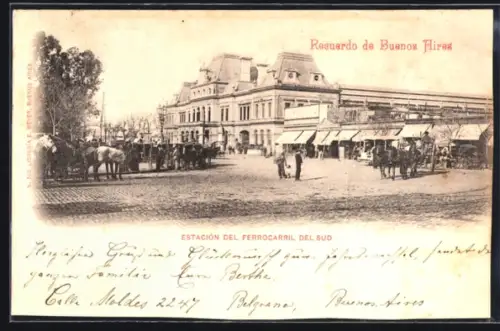 Recuerdo de Buenos Aires
ESTACIÓN DEL FERROCARRIL DEL SUD
Gruss und Glückwunsch zum Jahreswechsel, sendet der
ganzen Familie Eure Berthe
Calle Moldes 2247 Belgrano, Buenos Aires